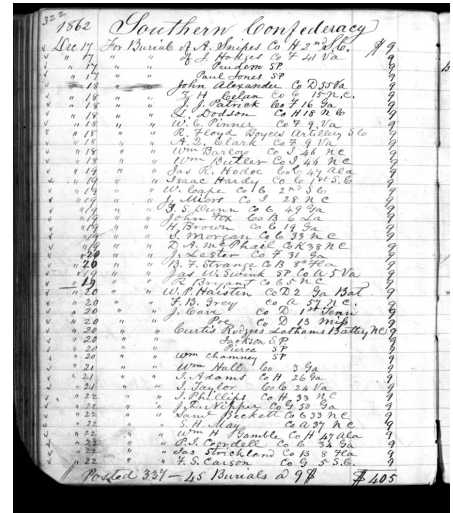 322
1862 Southern Confederacy
Dec 17 For Burial of A. Snipes Co H 2nd S.C. $9
" 17 " " " J. Hodges Co F 41 Va 9
" 17 " " " Prudem SP 9
17 " " " Paul Jones SP 9
" 18 " " John Alexander Co D 55 Va 9
" 18 " " Co C 15 N.C. 9
" 18 " " J. J. Patrick Co F 16 Ga 9
" 18 " " L. Dodson Co H 18 N C 9
" 18 " " W. C. Pinner Co F 9 Va 9
" 18 " " R. Floyd Boyces Artillery S C 9
" 18 " " A. D. Clark Co F 9 Va 9
" 18 " " Wm Barlow Co I 46 NC 9
" 18 " " Wm Butler Co I 46 NC 9
" 19 " " Jas R. Co C 47 Ala 9
" 19 " " Isaac Hardy Co C 14 S.C 9
" 19 " " W. Cape Co C 2nd S C 9
" 19 " " J. Miers Co I 28 NC 9
" 19 " " F. S. Dunn Co C 49 Ga 9
" 19 " " John Fox Co B 6 La 9
" 19 " " H. Brown Co C 19 Ga 9
" 19 " " S. Morgan Co C 33 NC 9
" 19 " " D. A. McPhail Co K 38 NC 9
" 20 " " J. Lester Co F 31 Ga 9
" 20 " " B. F. Strange Co B 8th Va 9
" 19 " " Jas W. Swink SP Co A 5 Va 9
" 19 " " R Bryant Co C 5 NC 9
" 20 " " W. P. Hairston Co D 2 Ga Bat 9
" 20 " " F. B. Grey Co A 57 NC. 9
" 20 " " J. Cave Co D 1st Tenn 9
" 20 " " Poe Co D 13 Miss 9
" 20 " " Curtis Rodgers Lathams Battery NC 9
" 20 " " Jackson SP 9
" 20 " " Pierce SP 9
" 20 " " Wm Chamney SP 9
" 21 " " Wm Hall Co 3 Ga 9
" 21 " " J. Adams Co H 26 Ga 9
" 21 " " J. Taylor Co C 24 Va 9
" 22 " " J. Phillips Co H 33 NC 9
" 22 " " J. T. Nipper Co G 50 Ga 9
" 22 " " Saml Beckett Co C 33 NC 9
" 22 " " S. H. May Co A 37 NC 9
" 22 " " Wm H Gamble Co H 47 Ala 9
" 22 " " P. J. Co C 34 Ga 9
" 22 " " Jas Strickland Co B 8 Fla 9
" 22 " " F. S. Carson Co G 5 S.C. 9
Posted 337 — 45 Burials @ 9$ $405